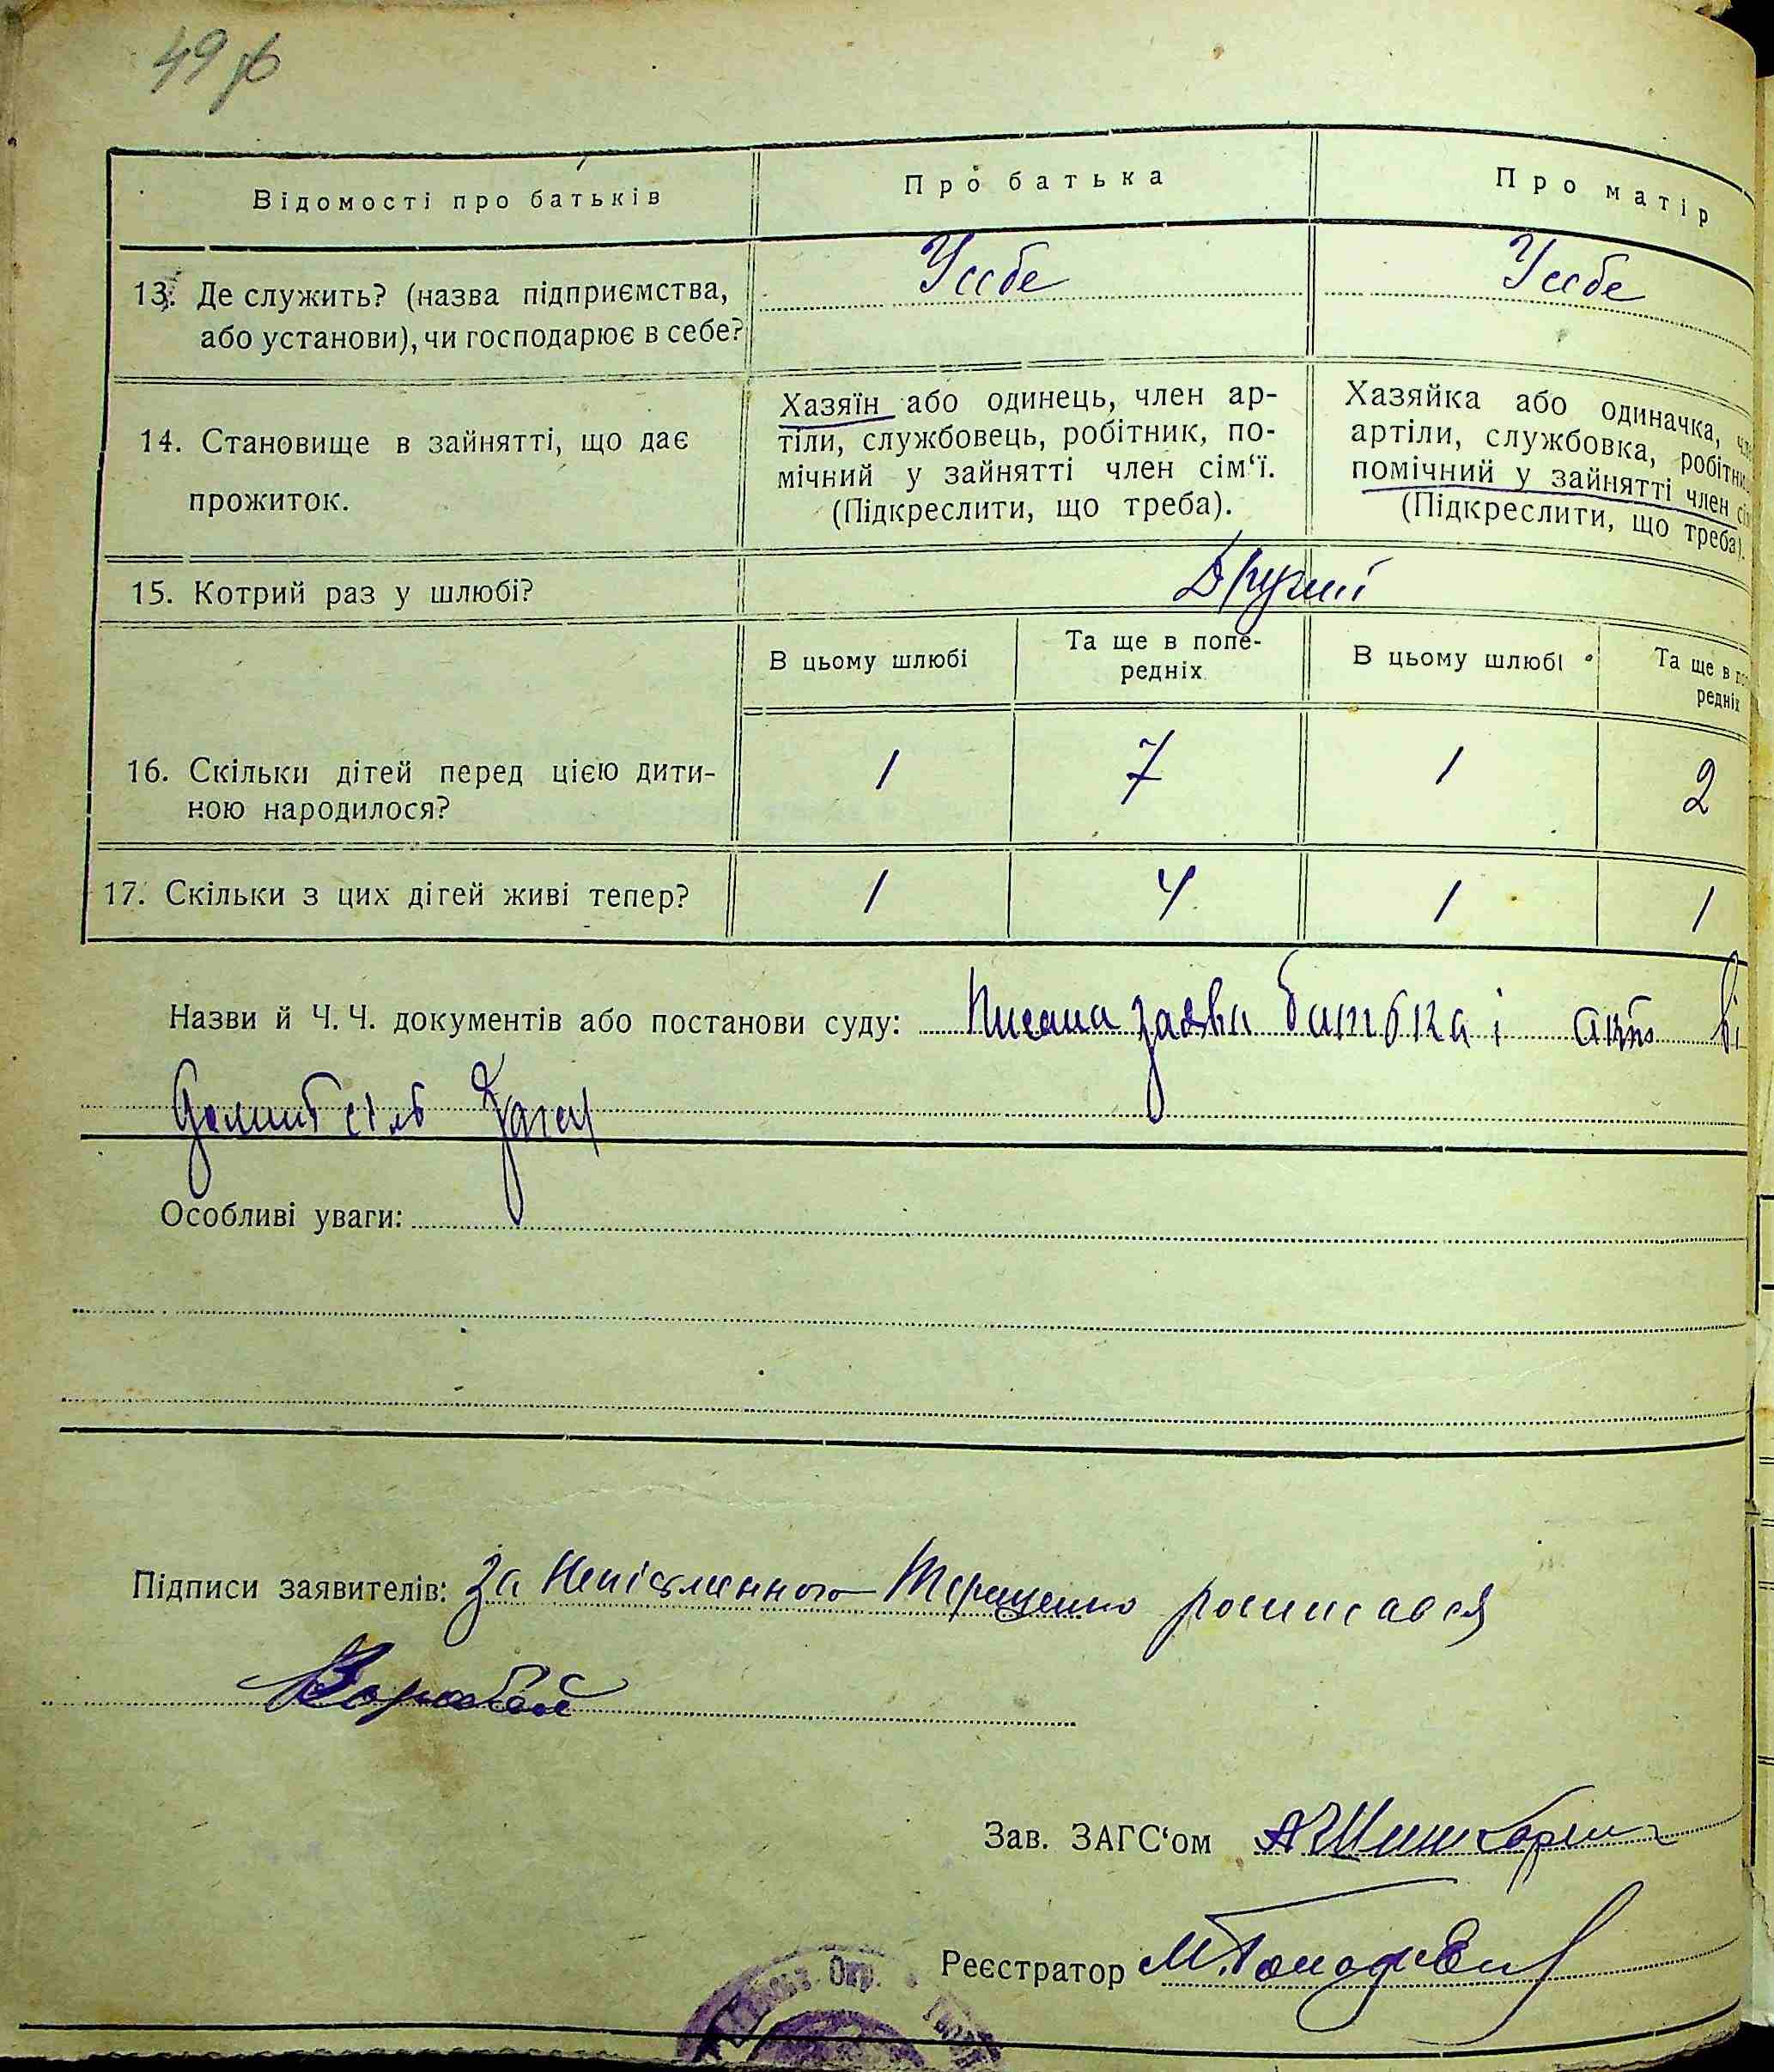 49
Відомості про батьків
Про батька
Про матір
13. Де служить? (назва підприємства,
або установи), чи господарює в себе?
Усебе
Усебе
14. Становище в зайнятті, що дає
прожиток.
Хазяїн або одинець, член ар-
тіли, службовець, робітник, по-
мічний у зайнятті член сім‘ї.
(Підкреслити, що треба).
Хазяйка або одиначка,
артіли, службовка,
помічний у зайнятті член
(Підкреслити, що треба).
15. Котрий раз у шлюбі?
Другий
В цьому шлюбі
Та ще в попе-
редніх
В цьому шлюбі
Та ще в
редніх
16. Скільки дітей перед цією дити-
ною народилося?
1
7
1
2
17. Скільки з цих дітей живі тепер?
1
4
1
1
Назви й Ч. Ч. документів або постанови суду: заява батька і акт
Особливі уваги:
Підписи заявителів: За Неписьменного Терещенко росписався
Воробей
Зав. ЗАГС‘ом
Реєстратор
Окр.